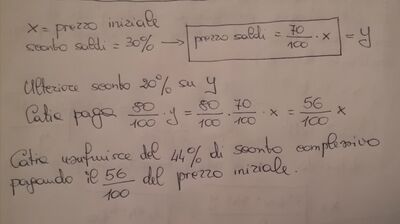 x = prezzo iniziale
sconto saldi = 30% → prezzo saldi = 70/100 · x = y
Ulteriore sconto 20% su y
Catia paga 80/100 · y = 80/100 · 70/100 · x = 56/100 x
Catia usufruisce del 44% di sconto complessivo
pagando il 56/100 del prezzo iniziale.